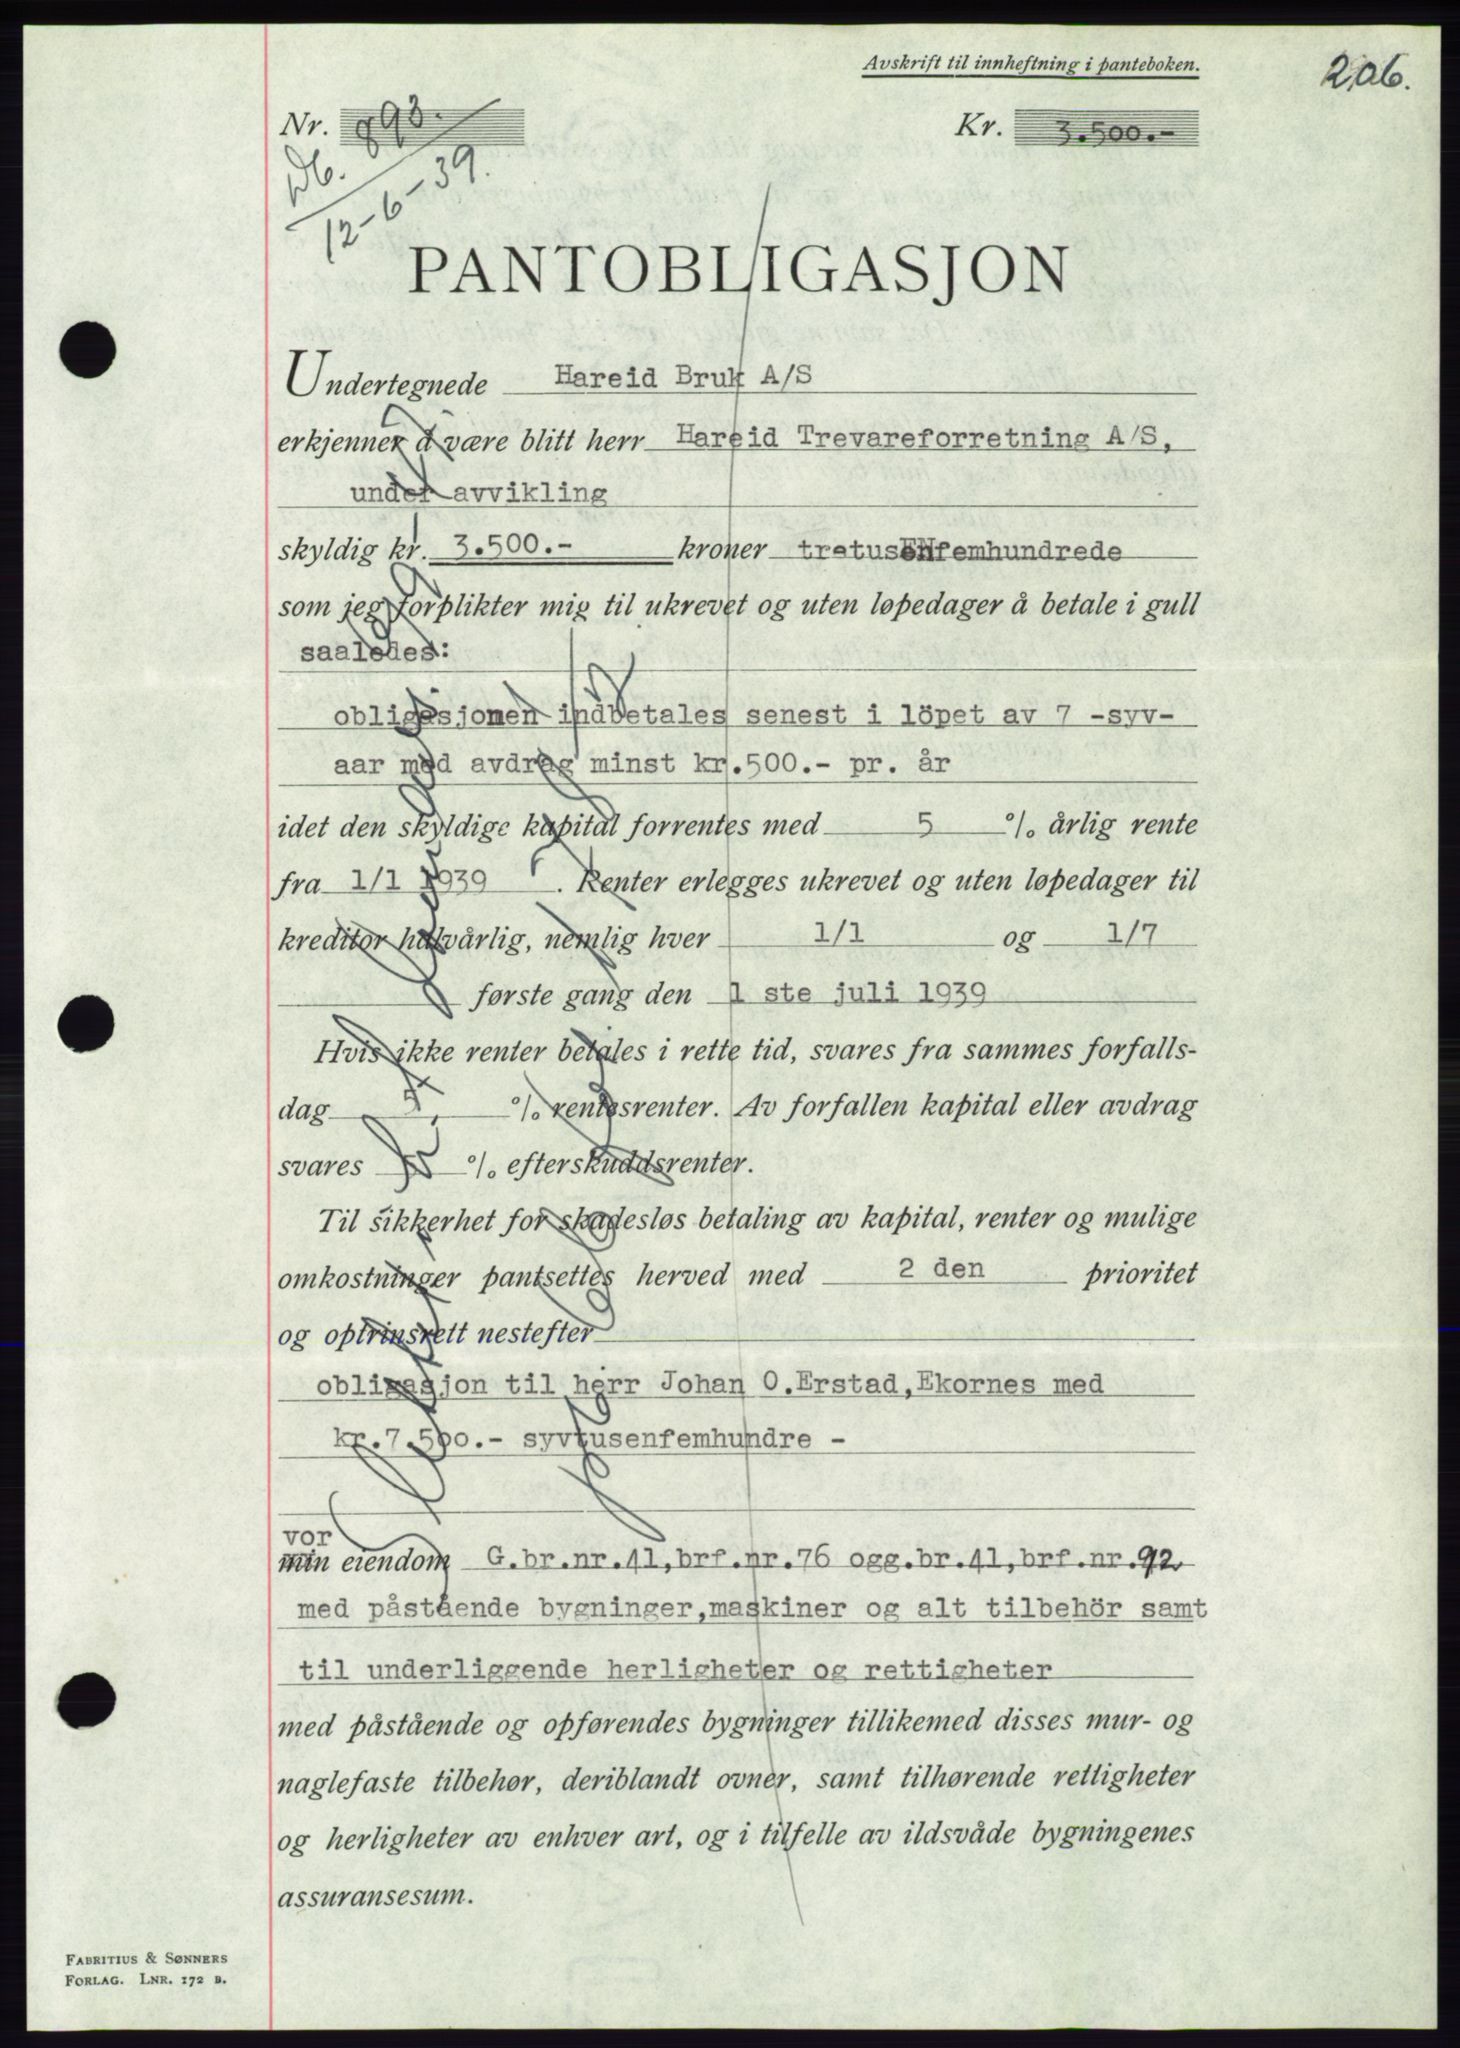 Avskrift til innheftning i panteboken.
206.
Nr. 893.
Kr. 3.500.-
Db.
12-6-39.
PANTOBLIGASJON
Undertegnede Hareid Bruk A/S
erkjenner å være blitt herr Hareid Trevareforretning A/S,
under avvikling
skyldig kr. 3.500.- kroner tretusENfemhundrede
som jeg forplikter mig til ukrevet og uten løpedager å betale i gull
saaledes:
obligasjonen indbetales senest i löpet av 7 -syv-
aar med avdrag minst kr.500.- pr. år
idet den skyldige kapital forrentes med 5 % årlig rente
fra 1/1 1939 . Renter erlegges ukrevet og uten løpedager til
kreditor halvårlig, nemlig hver 1/1 og 1/7
første gang den 1 ste juli 1939
Hvis ikke renter betales i rette tid, svares fra sammes forfalls-
dag 5 % rentesrenter. Av forfallen kapital eller avdrag
svares % efterskuddsrenter.
Til sikkerhet for skadesløs betaling av kapital, renter og mulige
omkostninger pantsettes herved med 2 den prioritet
og optrinsrett nestefter
obligasjon til herr Johan O.Erstad,Ekornes med
kr.7.500.- syvtusenfemhundre -
vor
min eiendom G.br.nr.41,brf.nr.76 ogg.br.41,brf.nr.92
med påstående bygninger,maskiner og alt tilbehör samt
til underliggende herligheter og rettigheter
med påstående og opførendes bygninger tillikemed disses mur- og
naglefaste tilbehør, deriblandt ovner, samt tilhørende rettigheter
og herligheter av enhver art, og i tilfelle av ildsvåde bygningenes
assuransesum.
FABRITIUS & SØNNERS
FORLAG. LNR. 172 B.